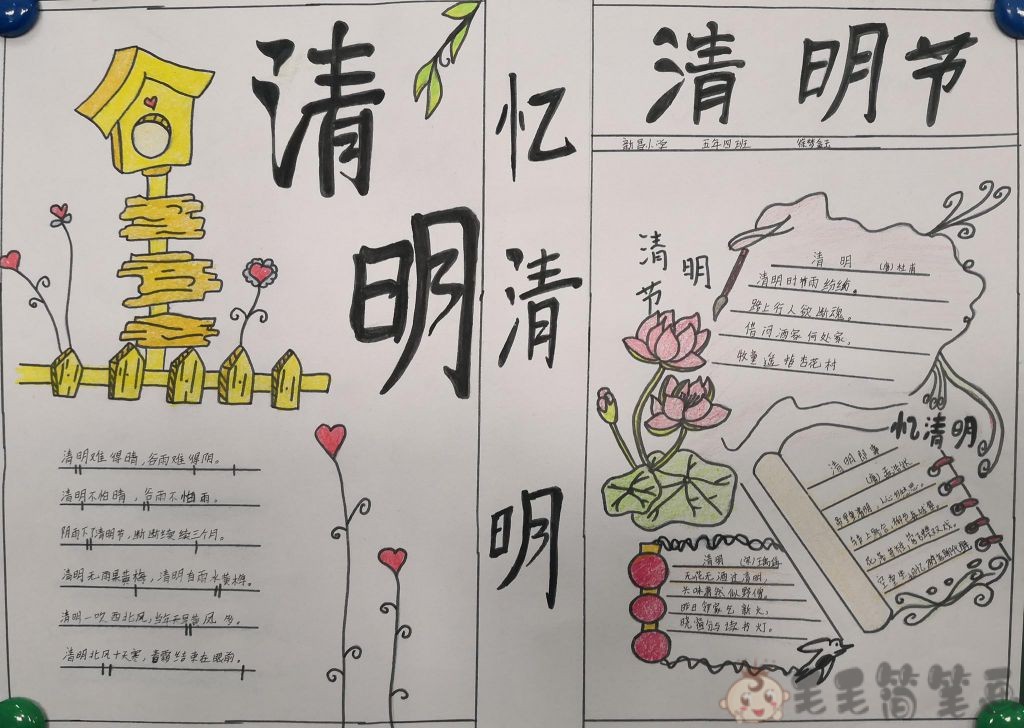 清
明
清明难得晴，谷雨难得阴。
清明不怕晴，谷雨不怕雨。
阴雨下了清明节，断断续续三个月。
清明无雨果黄梅，清明有雨水黄梅。
清明一吹西北风，当年
清明北风十天寒，春霜结束在眼前。
忆
清
明
清明节
新昌小学 五年四班
清明节
清明 (唐)杜甫
清明时节雨纷纷。
路上行人欲断魂。
借问酒家何处家，
牧童遥指杏花村
忆清明
清明即事
(唐)孟浩然
清明 (宋)
无花无酒过清明，
兴味萧然似野僧。
昨日邻家乞新火，
晓窗分与读书灯。
毛毛简笔画